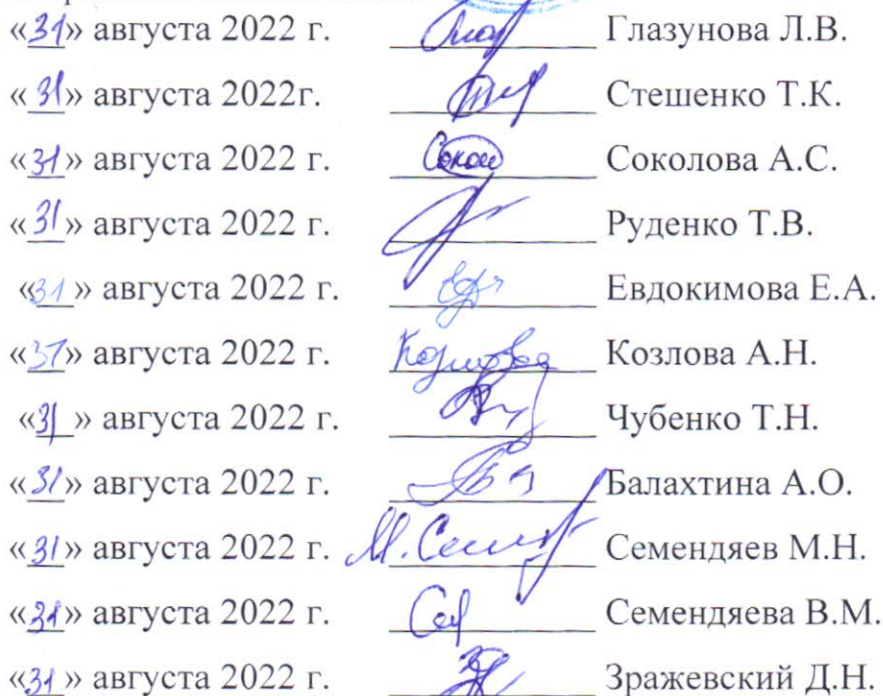 «31» августа 2022 г. Глазунова Л.В.
«31» августа 2022г. Стешенко Т.К.
«31» августа 2022 г. Соколова А.С.
«31» августа 2022 г. Руденко Т.В.
«31» августа 2022 г. Евдокимова Е.А.
«31» августа 2022 г. Козлова Козлова А.Н.
«31» августа 2022 г. Чубенко Т.Н.
«31» августа 2022 г. Балахтина А.О.
«31» августа 2022 г. Семендяев М.Н.
«31» августа 2022 г. Семендяева В.М.
«31» августа 2022 г. Зражевский Д.Н.